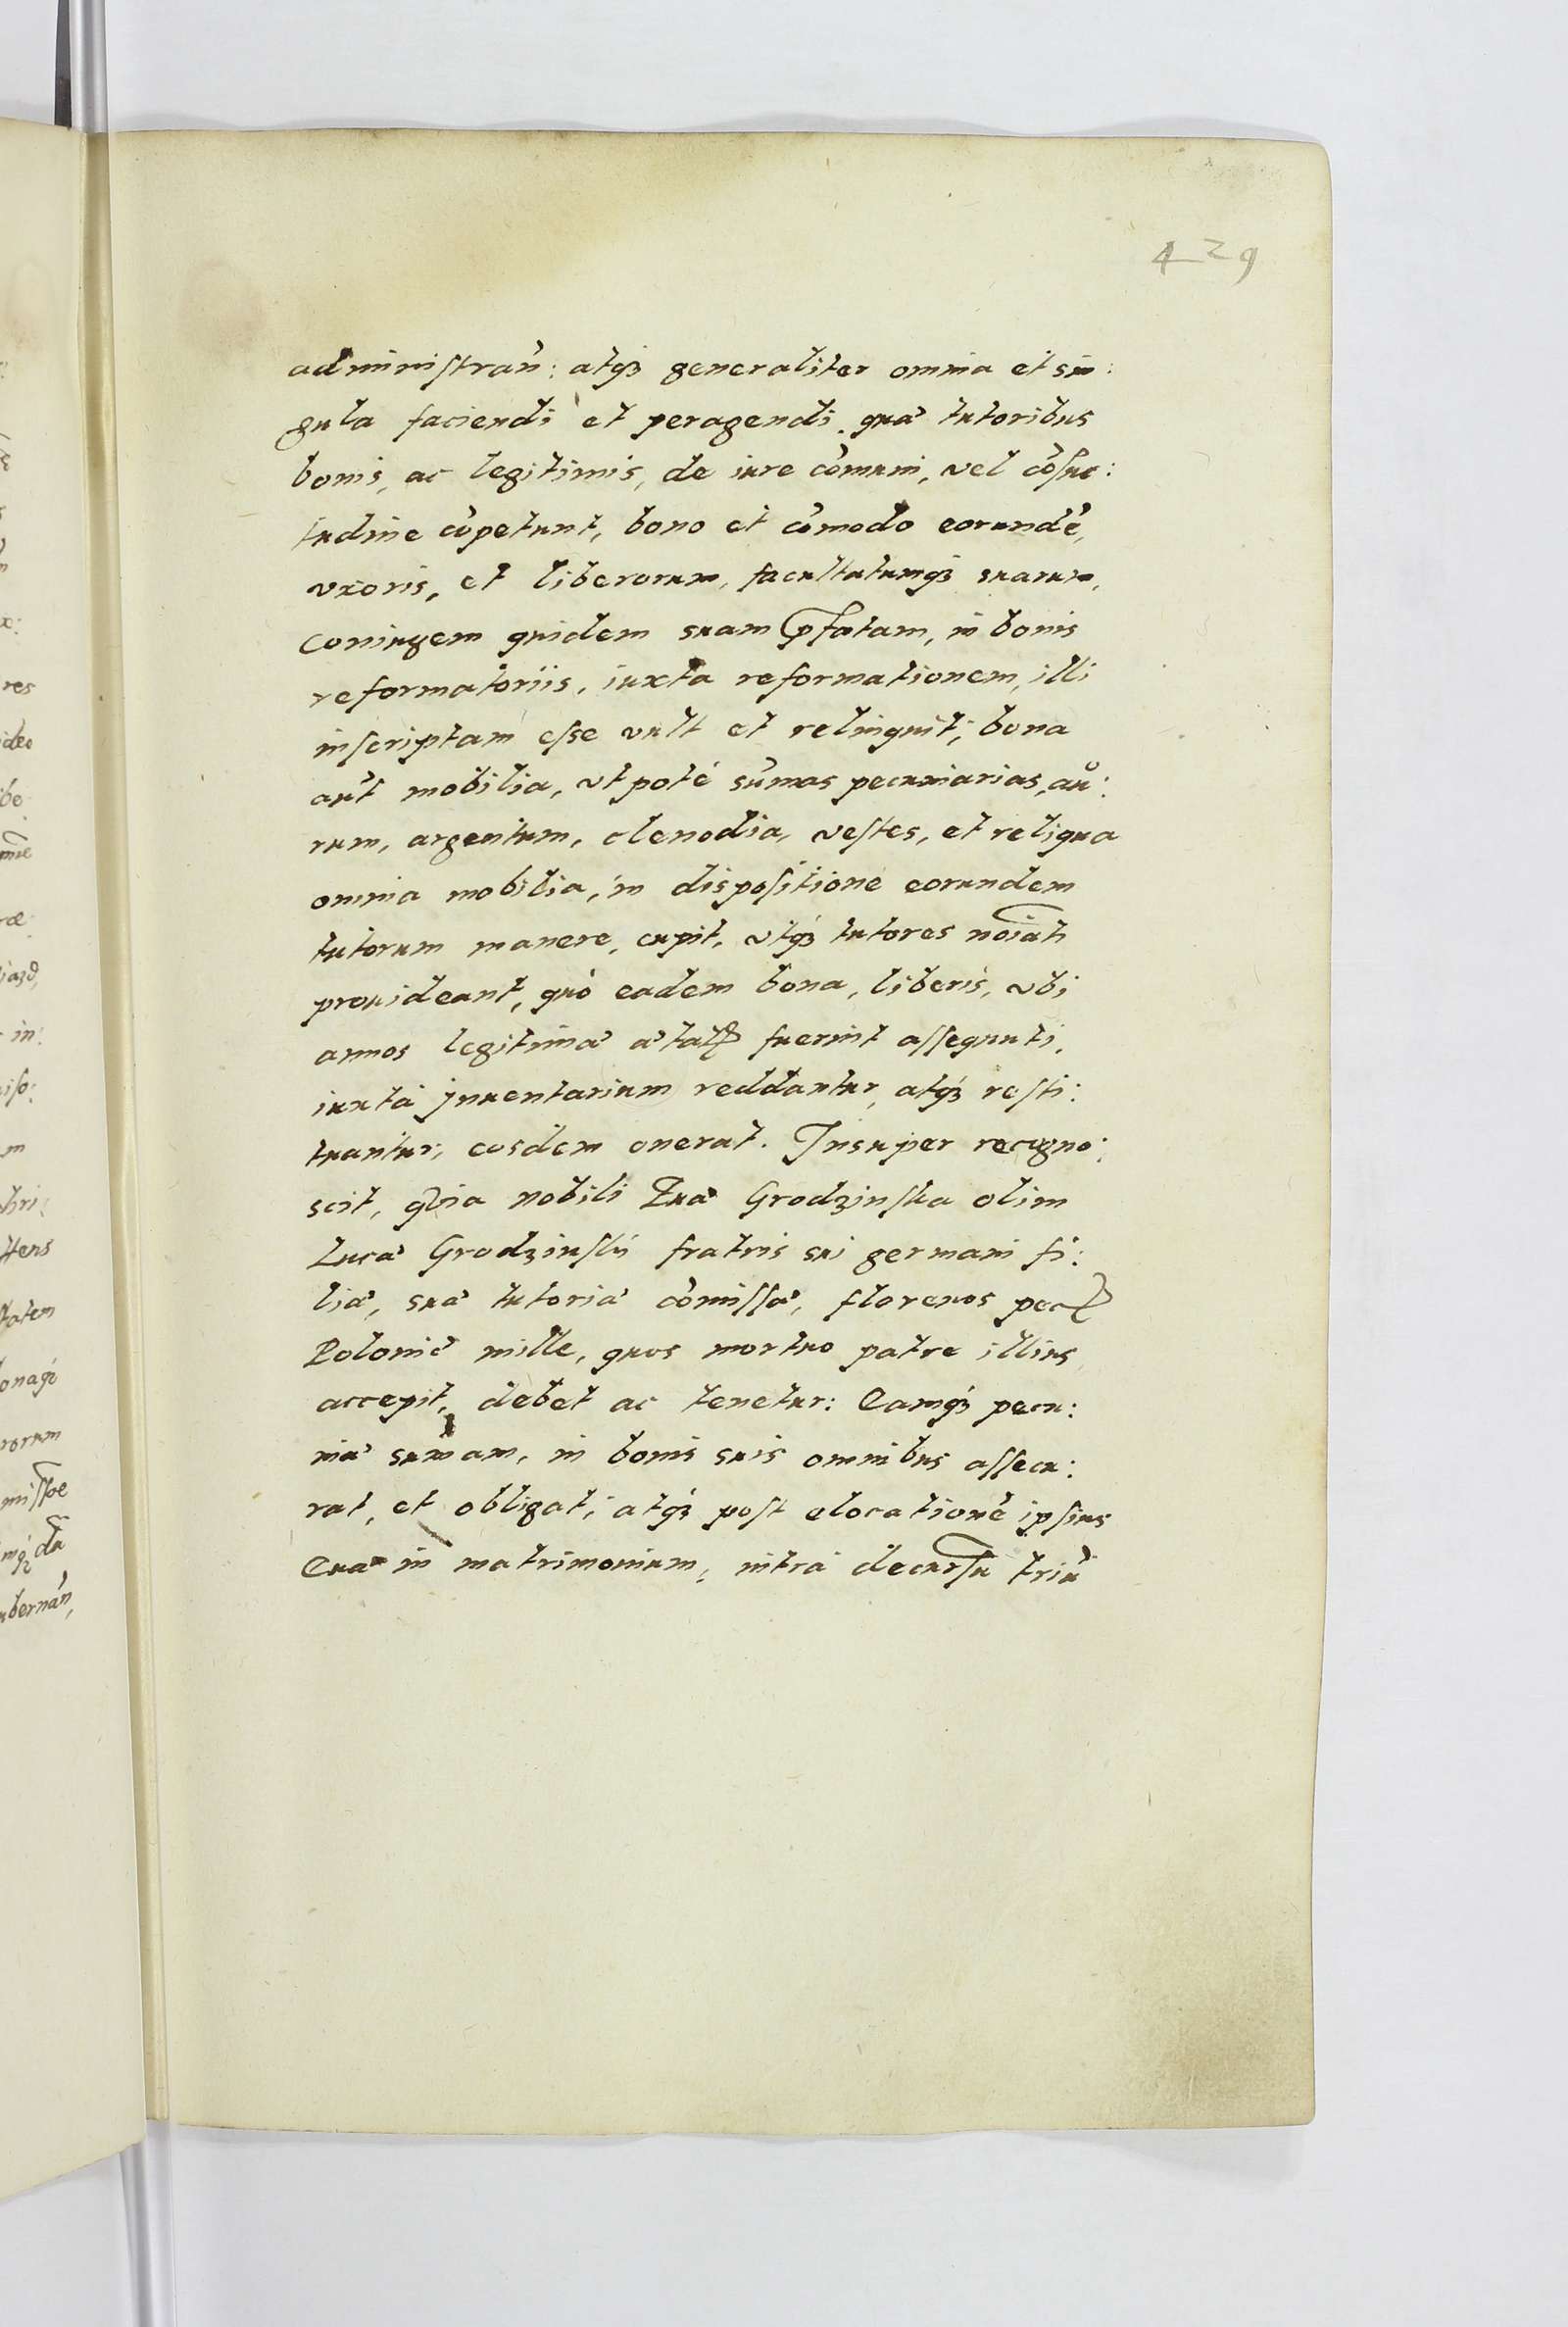 429
administrań: atqȝ generaliter omnia et sin:
gula faciendi et peragendi, quæ tutoribus
bonis, ac legitimis, de iure cōmuni, vel cōsue:
tudine cōpetunt, bono et cōmodo eorundē,
vxoris, et liberorum, facultatumqȝ suarum,
Coniugem quidem suam p̄fatam, in bonis
reformatoriis, iuxta reformationem, illi
inscriptam esse vult et relinquit; bona
aūt mobilia, vt poté sūmas pecuniarias, au:
rum, argentum, clenodia, vestes, et reliqua
omnia mobilia, in dispositione eorundem
tutorum manere, cupit, vtqȝ tutores noīati
prouideant, quò eadem bona, liberis, vbi
annos legitimæ ætatꝭ fuerint assequuti,
iuxtà Jnuentarium reddantur, atqȝ resti:
tuantur, eosdem onerat. Insuper recogno:
scit, quia nobili Euæ Grodzinska olim
Lucæ Grodzinskii fratris sui germani fi:
liæ, suæ tutoriæ cōmissæ, florenos pecꝭ
Polonic̄ mille, quos mortuo patre illius
accepit, debet ac tenetur: Eamqȝ pecu:
niæ sumam, in bonis suis omnibus assecu:
rat, et obligat; atqȝ post elocationē ipsius
Euæ in matrimonium, intrà decursū triū